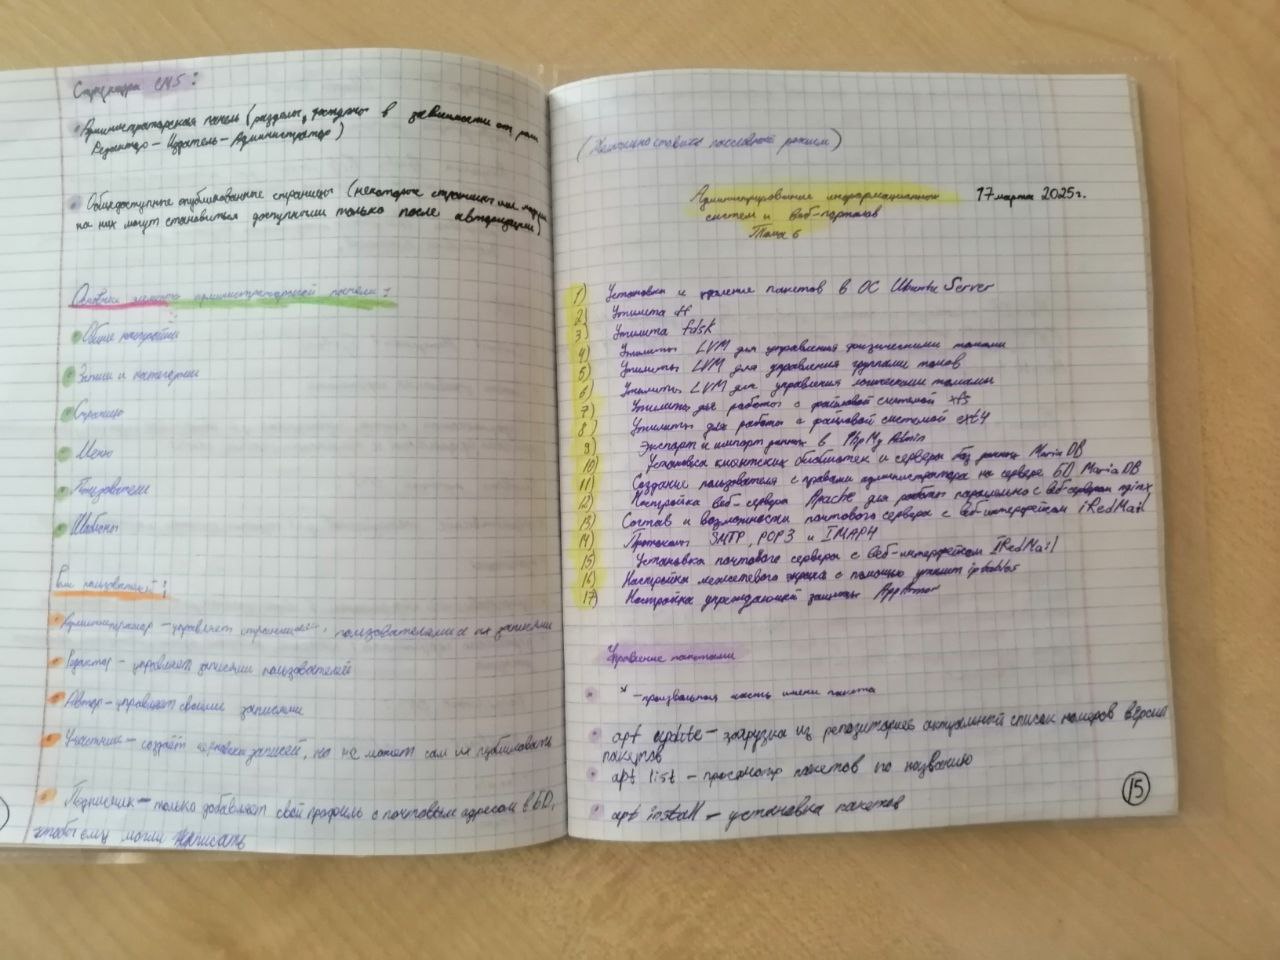 Структура CMS:
Администраторская панель (разделы, доступны в зависимости от роли
Редактор – Издатель – Администратор)
Общедоступные опубликованные страницы (некоторые страницы или
на них могут становиться доступными только после авторизации)
Основные элементы администраторской панели:
Общие настройки
Записи и категории
Страницы
Меню
Пользователи
Шаблоны
пользователей:
Администратор – управляет страницами, пользователями и их записями
Редактор – управляет записями пользователей
Автор – управляет своими записями
Участник – создаёт черновики записей, но не может сам их публиковать
Подписчик – только добавляет свой профиль с почтовым адресом в БД,
чтобы ему могли написать
режим)
Администрирование информационных 17 марта 2025г.
систем и веб-порталов
Тема 6
1) Установка и удаление пакетов в ОС Ubuntu Server
2) Утилита df
3) Утилита fdsk
4) Утилиты LVM для управления физическими томами
5) Утилиты LVM для управления группами томов
6) Утилиты LVM для управления логическими томами
7) Утилиты для работы с файловой системой xfs
8) Утилиты для работы с файловой системой ext4
9) Экспорт и импорт данных в PhpMyAdmin
10) Установка клиентских библиотек и сервера баз данных MariaDB
11) Создание пользователя с правами администратора на сервере БД MariaDB
12) Настройка веб-сервера Apache для работы параллельно с веб-сервером nginx
13) Состав и возможности почтового сервера с веб-интерфейсом iRedMail
14) Протоколы SMTP, POP3 и IMAP4
15) Установка почтового сервера с веб-интерфейсом IRedMail
16) Настройка межсетевого экрана с помощью утилит iptables
17) Настройка упреждающей защиты AppArmor
пакетами
* – произвольная часть имени пакета
apt update – загрузка из репозиториев актуальный список номеров версий
пакетов
apt list – просмотр пакетов по названию
apt install – установка пакетов
15